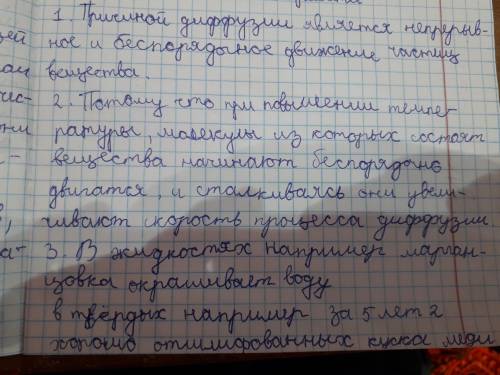 1. Причиной диффузии является непрерыв-
ное и беспорядочное движение частиц
вещества.
2. Потому что при повышении темпе-
ратуры, молекулы из которых состоят
вещества начинают беспорядоно
двигатся, и сталкиваясь они увели-
чивают скорость процесса диффузии.
3. В жидкостях например марган-
цовка окрашивает воду
в твёрдых например за 5 лет 2
хорошо отшлифованных куска меди